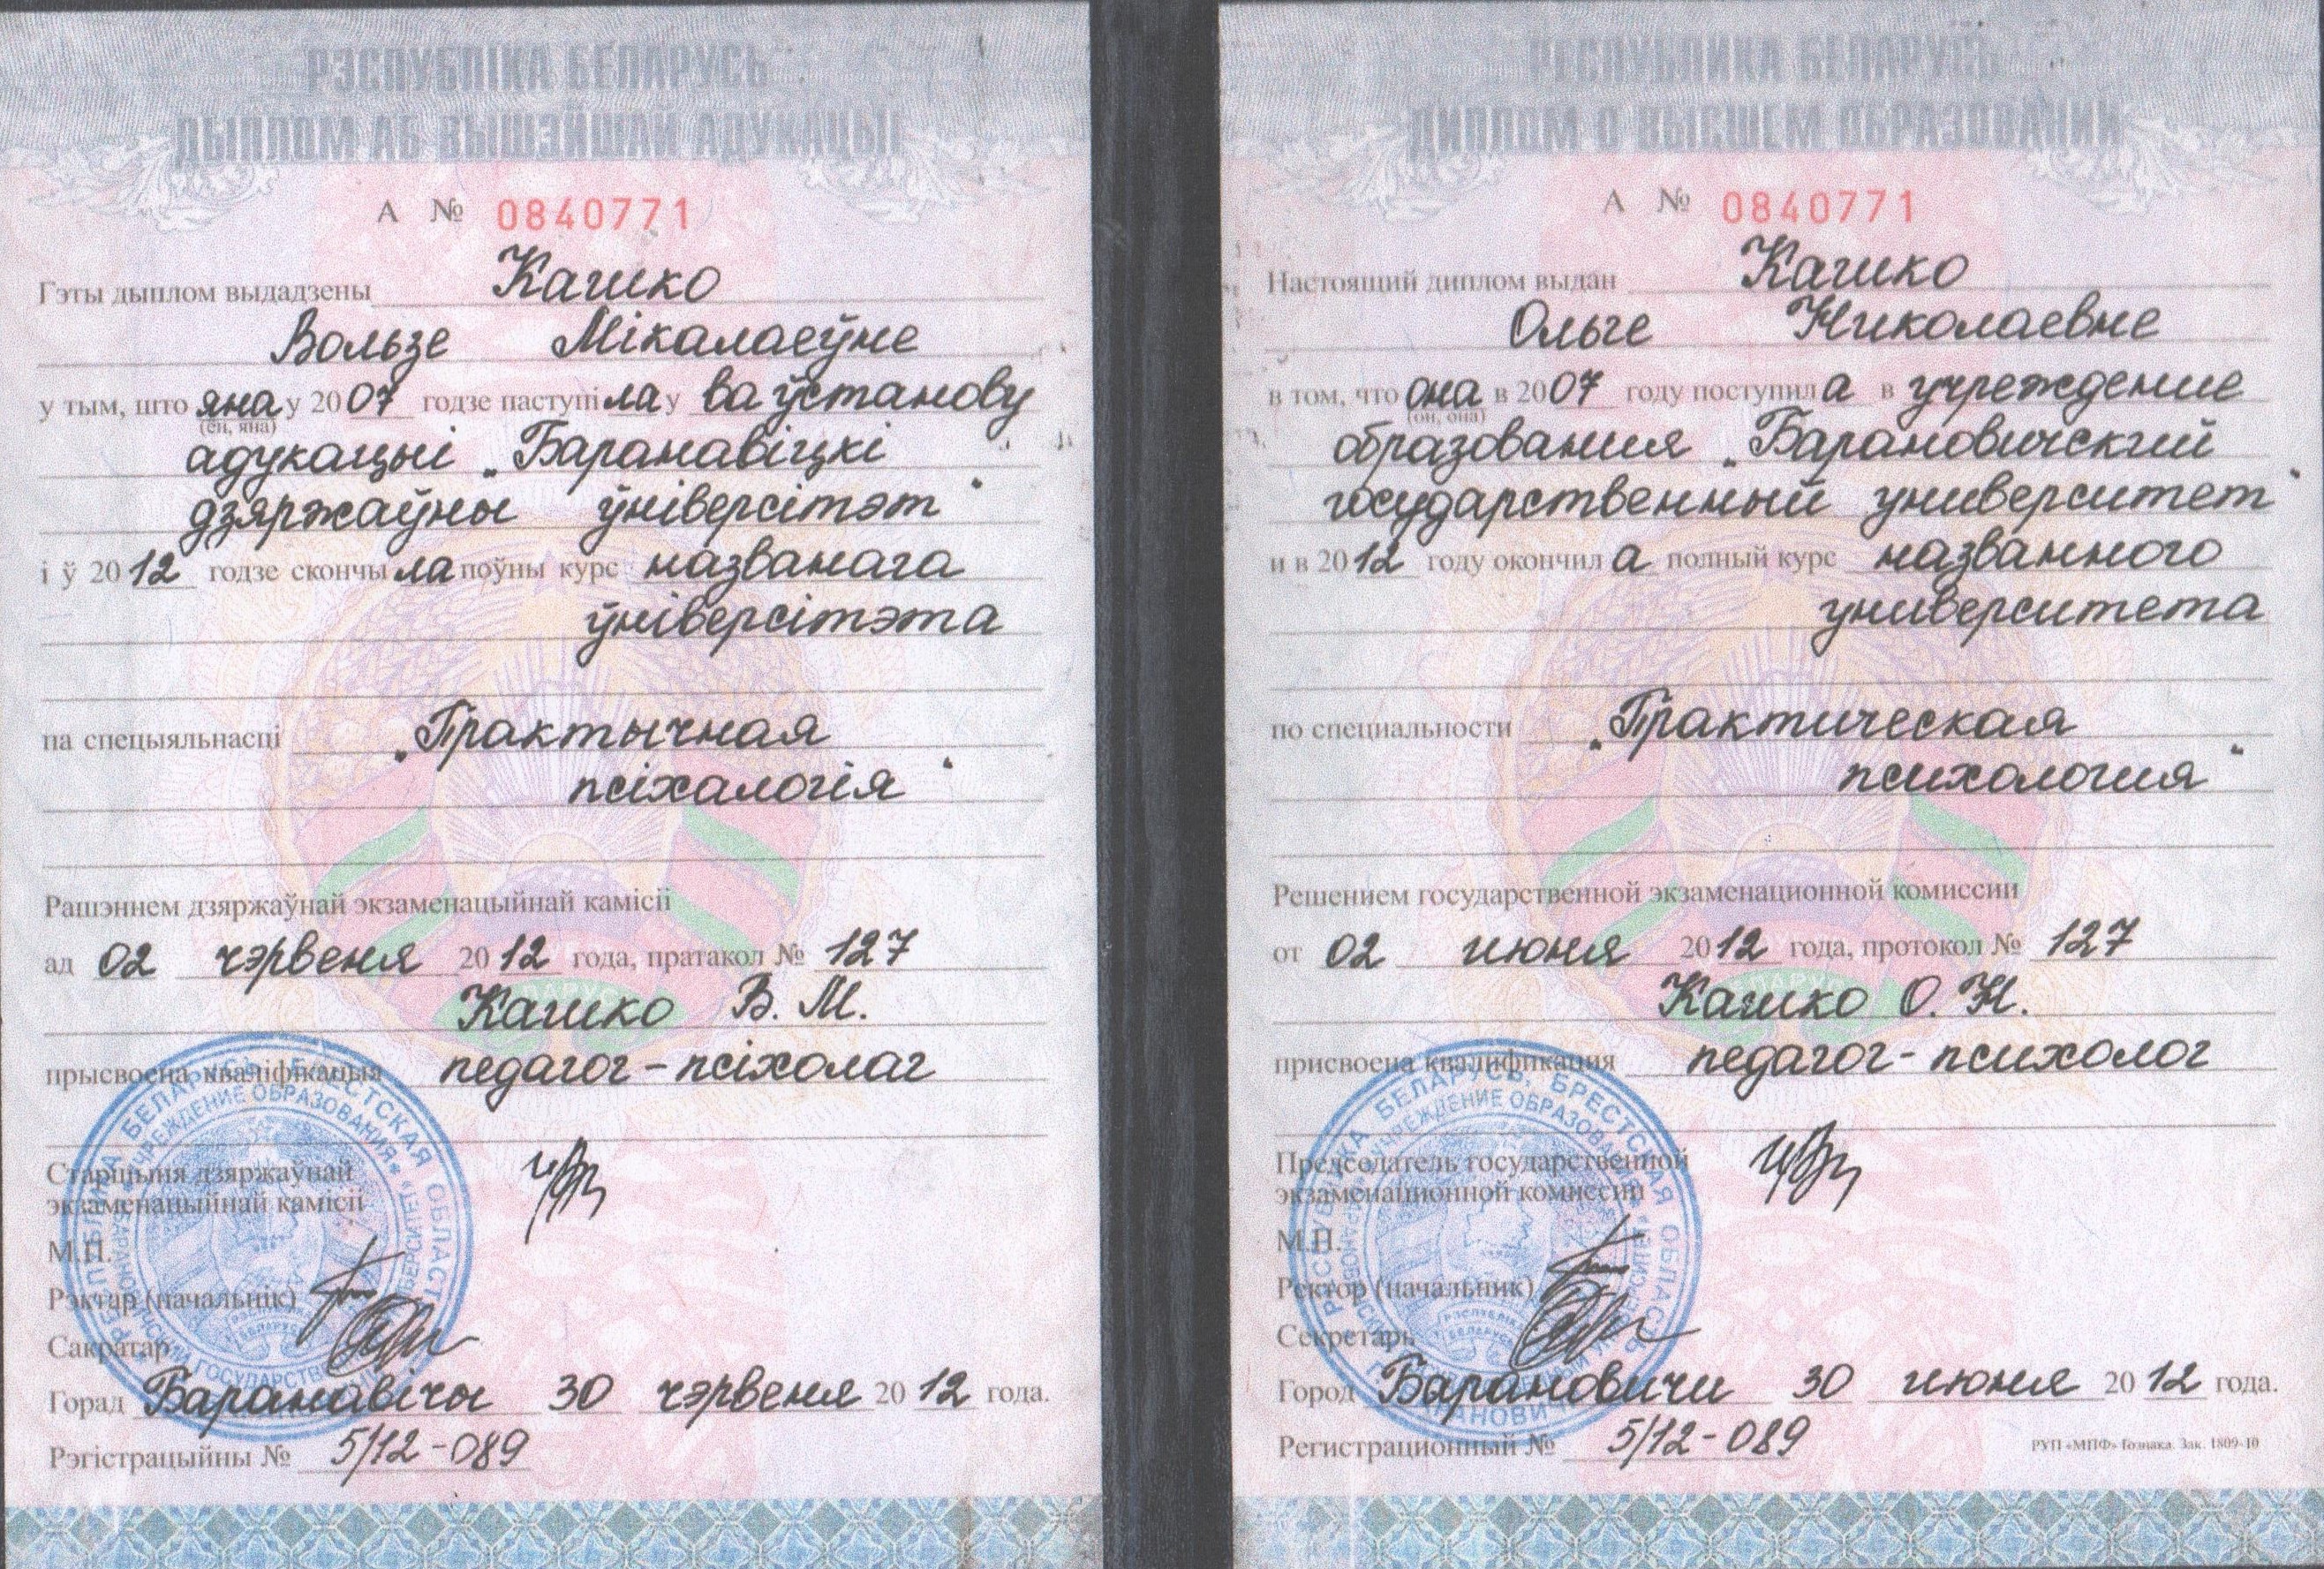 РЭСПУБЛІКА БЕЛАРУСЬ
ДЫПЛОМ АБ ВЫШЭЙШАЙ АДУКАЦЫІ
А № 0840771
Гэты дыплом выдадзены Кашко
Вользе Мікалаеўне
у тым, што яна у 2007 годзе паступіла у ва ўстанову
(ён, яна)
адукацыі „Баранавіцкі
дзяржаўны ўніверсітэт“
і ў 2012 годзе скончыла поўны курс названага
ўніверсітэта
па спецыяльнасці „Практычная
псіхалогія“
Рашэннем дзяржаўнай экзаменацыйнай камісіі
ад 02 чэрвеня 2012 года, пратакол № 127
Кашко В. М.
прысвоена кваліфікацыя педагог-псіхолаг
Старшыня дзяржаўнай
экзаменацыйнай камісіі
М.П.
Рэктар (начальнік)
Сакратар
Горад Баранавічы 30 чэрвеня 2012 года.
Рэгістрацыйны № 5/12-089
РЕСПУБЛИКА БЕЛАРУСЬ
ДИПЛОМ О ВЫСШЕМ ОБРАЗОВАНИИ
А № 0840771
Настоящий диплом выдан Кашко
Ольге Николаевне
в том, что она в 2007 году поступила в учреждение
(он, она)
образования „Барановичский
государственный университет“
и в 2012 году окончила полный курс названного
университета
по специальности „Практическая
психология“
Решением государственной экзаменационной комиссии
от 02 июня 2012 года, протокол № 127
Кашко О. Н.
присвоена квалификация педагог-психолог
Председатель государственной
экзаменационной комиссии
М.П.
Ректор (начальник)
Секретарь
Город Барановичи 30 июня 2012 года.
Регистрационный № 5/12-089
РУП «МПФ» Гознака. Зак. 1809-10
РЕСПУБЛИКА БЕЛАРУСЬ, БРЕСТСКАЯ ОБЛАСТЬ
УЧРЕЖДЕНИЕ ОБРАЗОВАНИЯ